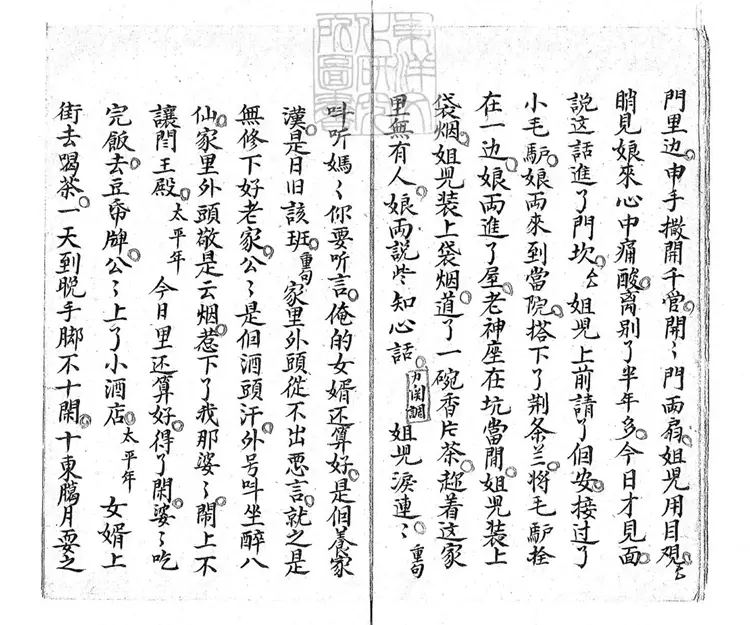 門里边申手撒開千管開〻門両扇姐児用目覌
睄見娘來心中痛酸离别了半年多今日才見面
説这話進了門坎 姐児上前請了但安接过了
小毛馿娘両來到當院搭下了荆条兰将毛馿拴
在一边娘両進了屋老神座在坑當間姐児装上
袋烟姐児装上袋烟道了一碗香片茶趂着这家
里無有人娘両説些知心話 力関調 姐児淚連〻 重句
呌听媽〻你要听言俺的女婿还算好是個養家
漢是日旧該班 重句 家里外頭從不出悪言就之是
無修下好老家公〻是個酒頭汗外号呌坐醉八
仙家里外頭敬是云烟惹下了我那婆〻閙上不
讓閆王殿 太平年 今日里还算好得了閑婆〻吃
完飯去豆帝牌公〻上了小酒店 太平年 女婿上
街去喝茶一天到晚手脚不十閑十東臈月耍之